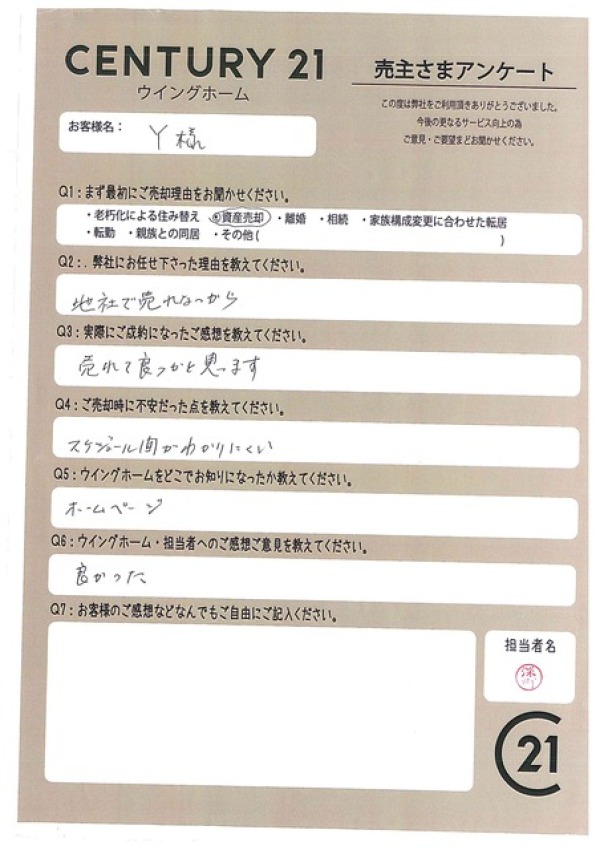 CENTURY 21
ウイングホーム
売主さまアンケート
この度は弊社をご利用頂きありがとうございました。
今後の更なるサービス向上の為
ご意見・ご要望をお聞かせください。
お客様名： Y様
Q1：まず最初にご売却理由をお聞かせください。
・老朽化による住み替え ・資産売却 ・離婚 ・相続 ・家族構成変更に合わせた転居
・転勤 ・親族との同居 ・その他( )
Q2：. 弊社にお任せ下さった理由を教えてください。
他社で売れなっから
Q3：実際にご成約になったご感想を教えてください。
売れて良っかと思っます
Q4：ご売却時に不安だった点を教えてください。
スケジュール面がわかりにくい
Q5：ウイングホームをどこでお知りになったか教えてください。
ホームページ
Q6：ウイングホーム・担当者へのご感想ご意見を教えてください。
良かった
Q7：お客様のご感想などなんでもご自由にご記入ください。
担当者名
21